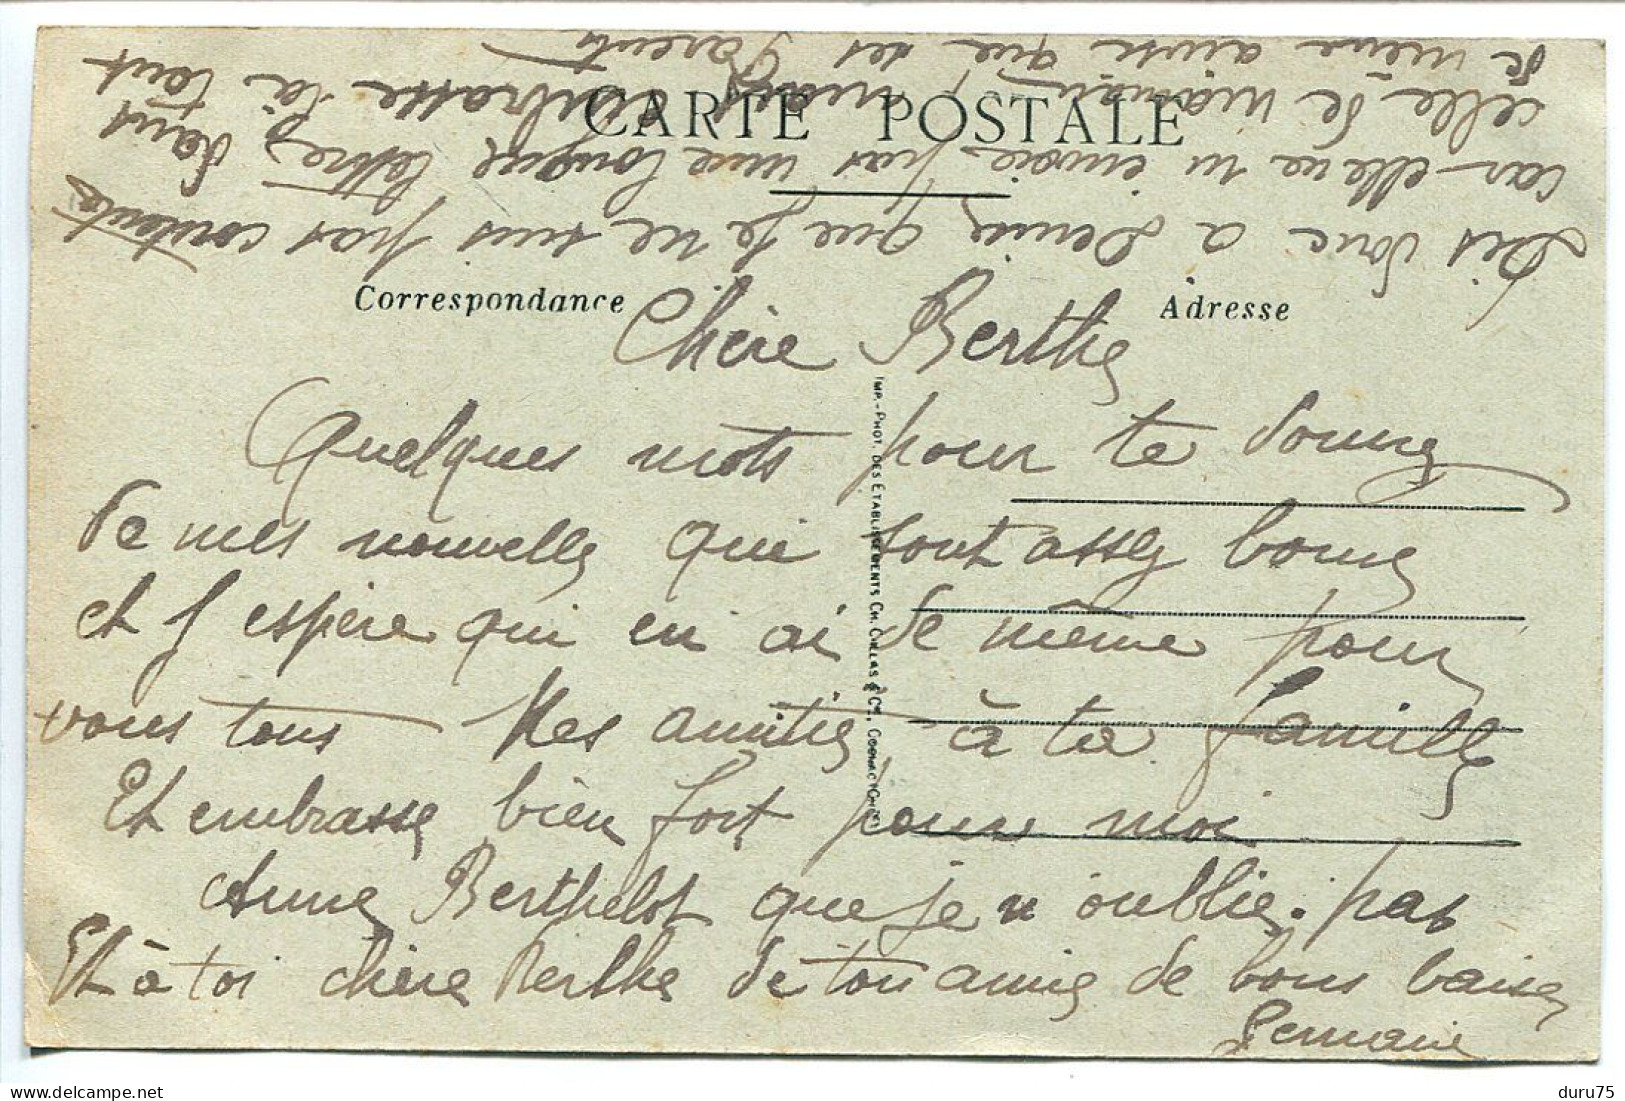 CARTE POSTALE
Correspondance
Adresse
Chère Berthe
Quelques mots pour te donne
de mes nouvelles qui sont assez bonne
et j espère qui en ai de même pour
vous tous Mes amitiés à ta famille
Et embrasse bien fort pour moi
Anne Berthelot que je n'oublie pas
Et à toi chère Berthe de ton amie de bons baisers
Germaine
Dis donc a Denise que je ne suis pas contente
car elle ne m envoie pas une longue lettre, dans
celle de maman, mais embrasse là tout
de même ainsi que ses parents
IMP.-PHOT. DES ÉTABLISSEMENTS CH. COLLAS & Cie, COGNAC
duru75